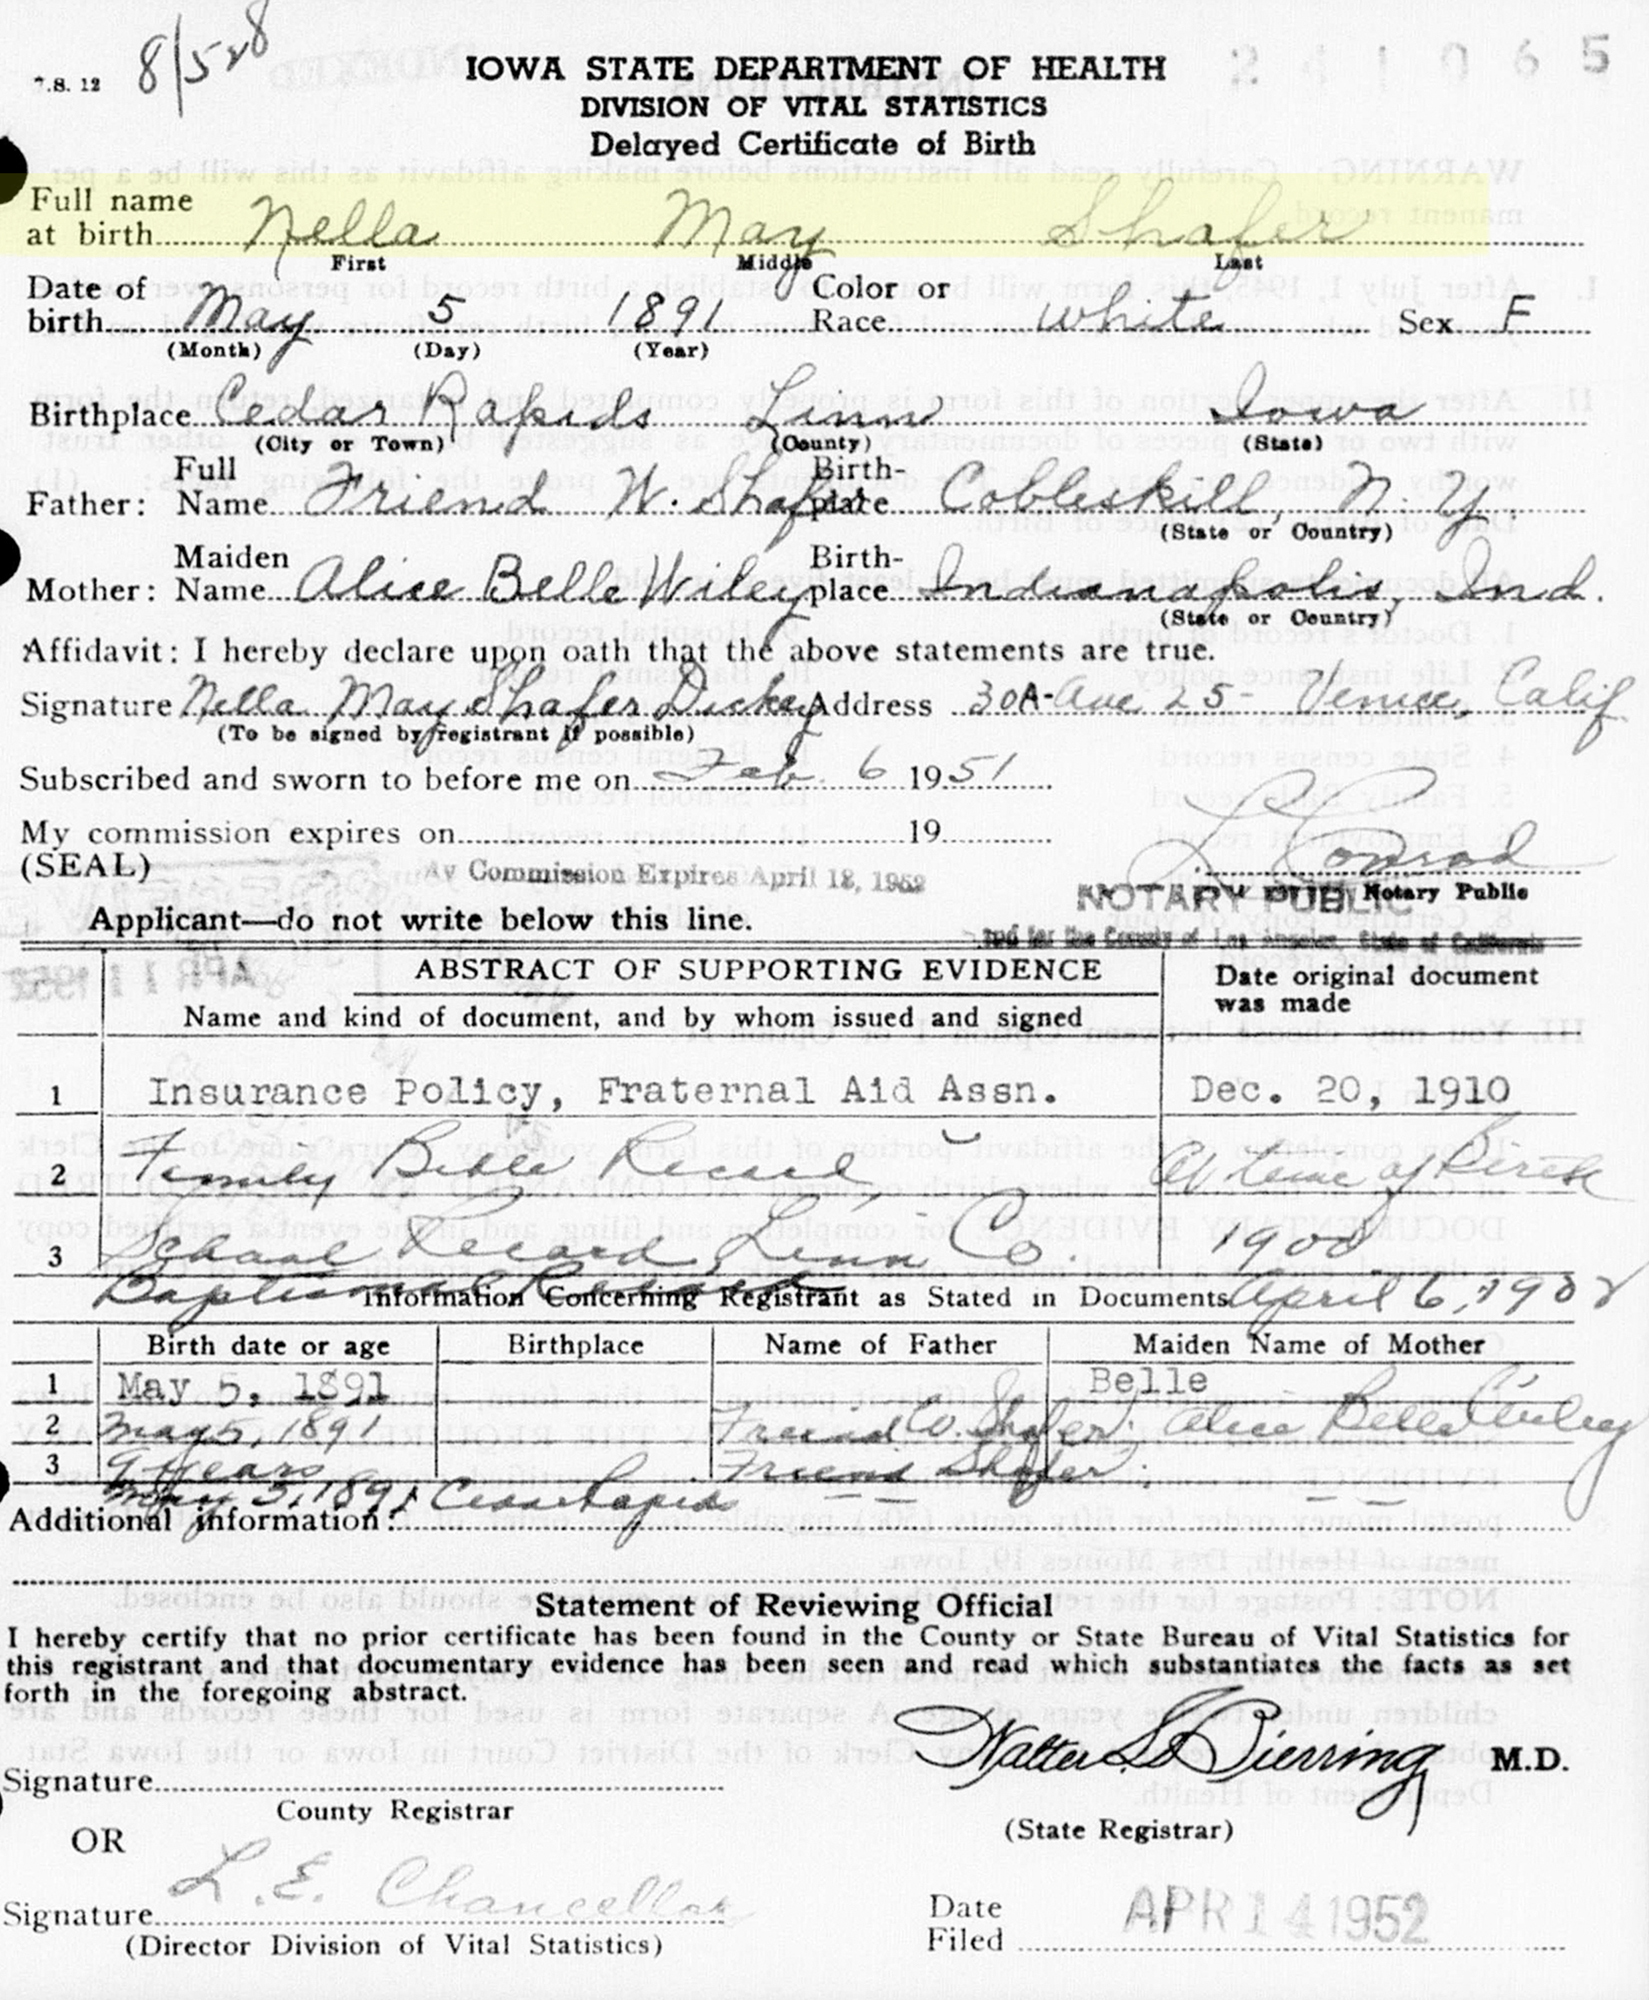 7.S. 12 8/528
241065
IOWA STATE DEPARTMENT OF HEALTH
DIVISION OF VITAL STATISTICS
Delayed Certificate of Birth
Full name
at birth Nella May Shafer
First Middle Last
Date of birth May 5 1891 Color or Race white Sex F
(Month) (Day) (Year)
Birthplace Cedar Rapids Linn Iowa
(City or Town) (County) (State)
Father: Full Name Friend W. Shafer Birth-place Cobleskill, N.Y.
(State or Country)
Mother: Maiden Name Alice Belle Wiley Birth-place Indianapolis, Ind.
(State or Country)
Affidavit: I hereby declare upon oath that the above statements are true.
Signature Nella May Shafer Dickey Address 30A-Ave 25- Venice, Calif
(To be signed by registrant if possible)
Subscribed and sworn to before me on Feb. 6 1951
My commission expires on 19
L Conrad
(SEAL) My Commission Expires April 18, 1952
NOTARY PUBLIC Notary Public
Applicant—do not write below this line.
and for the County of Los Angeles, State of California
ABSTRACT OF SUPPORTING EVIDENCE
Name and kind of document, and by whom issued and signed
Date original document was made
1 Insurance Policy, Fraternal Aid Assn. Dec. 20, 1910
2 Family Bible Record At time of Birth
3 School Record, Linn Co. 1900
Baptismal Record April 6, 1902
Information Concerning Registrant as Stated in Documents
Birth date or age Birthplace Name of Father Maiden Name of Mother
1 May 5, 1891 Belle
2 May 5, 1891 Freind W. Shafer Alice Belle Wiley
3 9 years Friend Shafer
May 5, 1891 Cedar Rapids
Additional information:
Statement of Reviewing Official
I hereby certify that no prior certificate has been found in the County or State Bureau of Vital Statistics for
this registrant and that documentary evidence has been seen and read which substantiates the facts as set
forth in the foregoing abstract.
Walter L. Bierring M.D.
Signature
County Registrar
(State Registrar)
OR
L. E. Chancellor
Signature
(Director Division of Vital Statistics)
Date Filed APR 14 1952